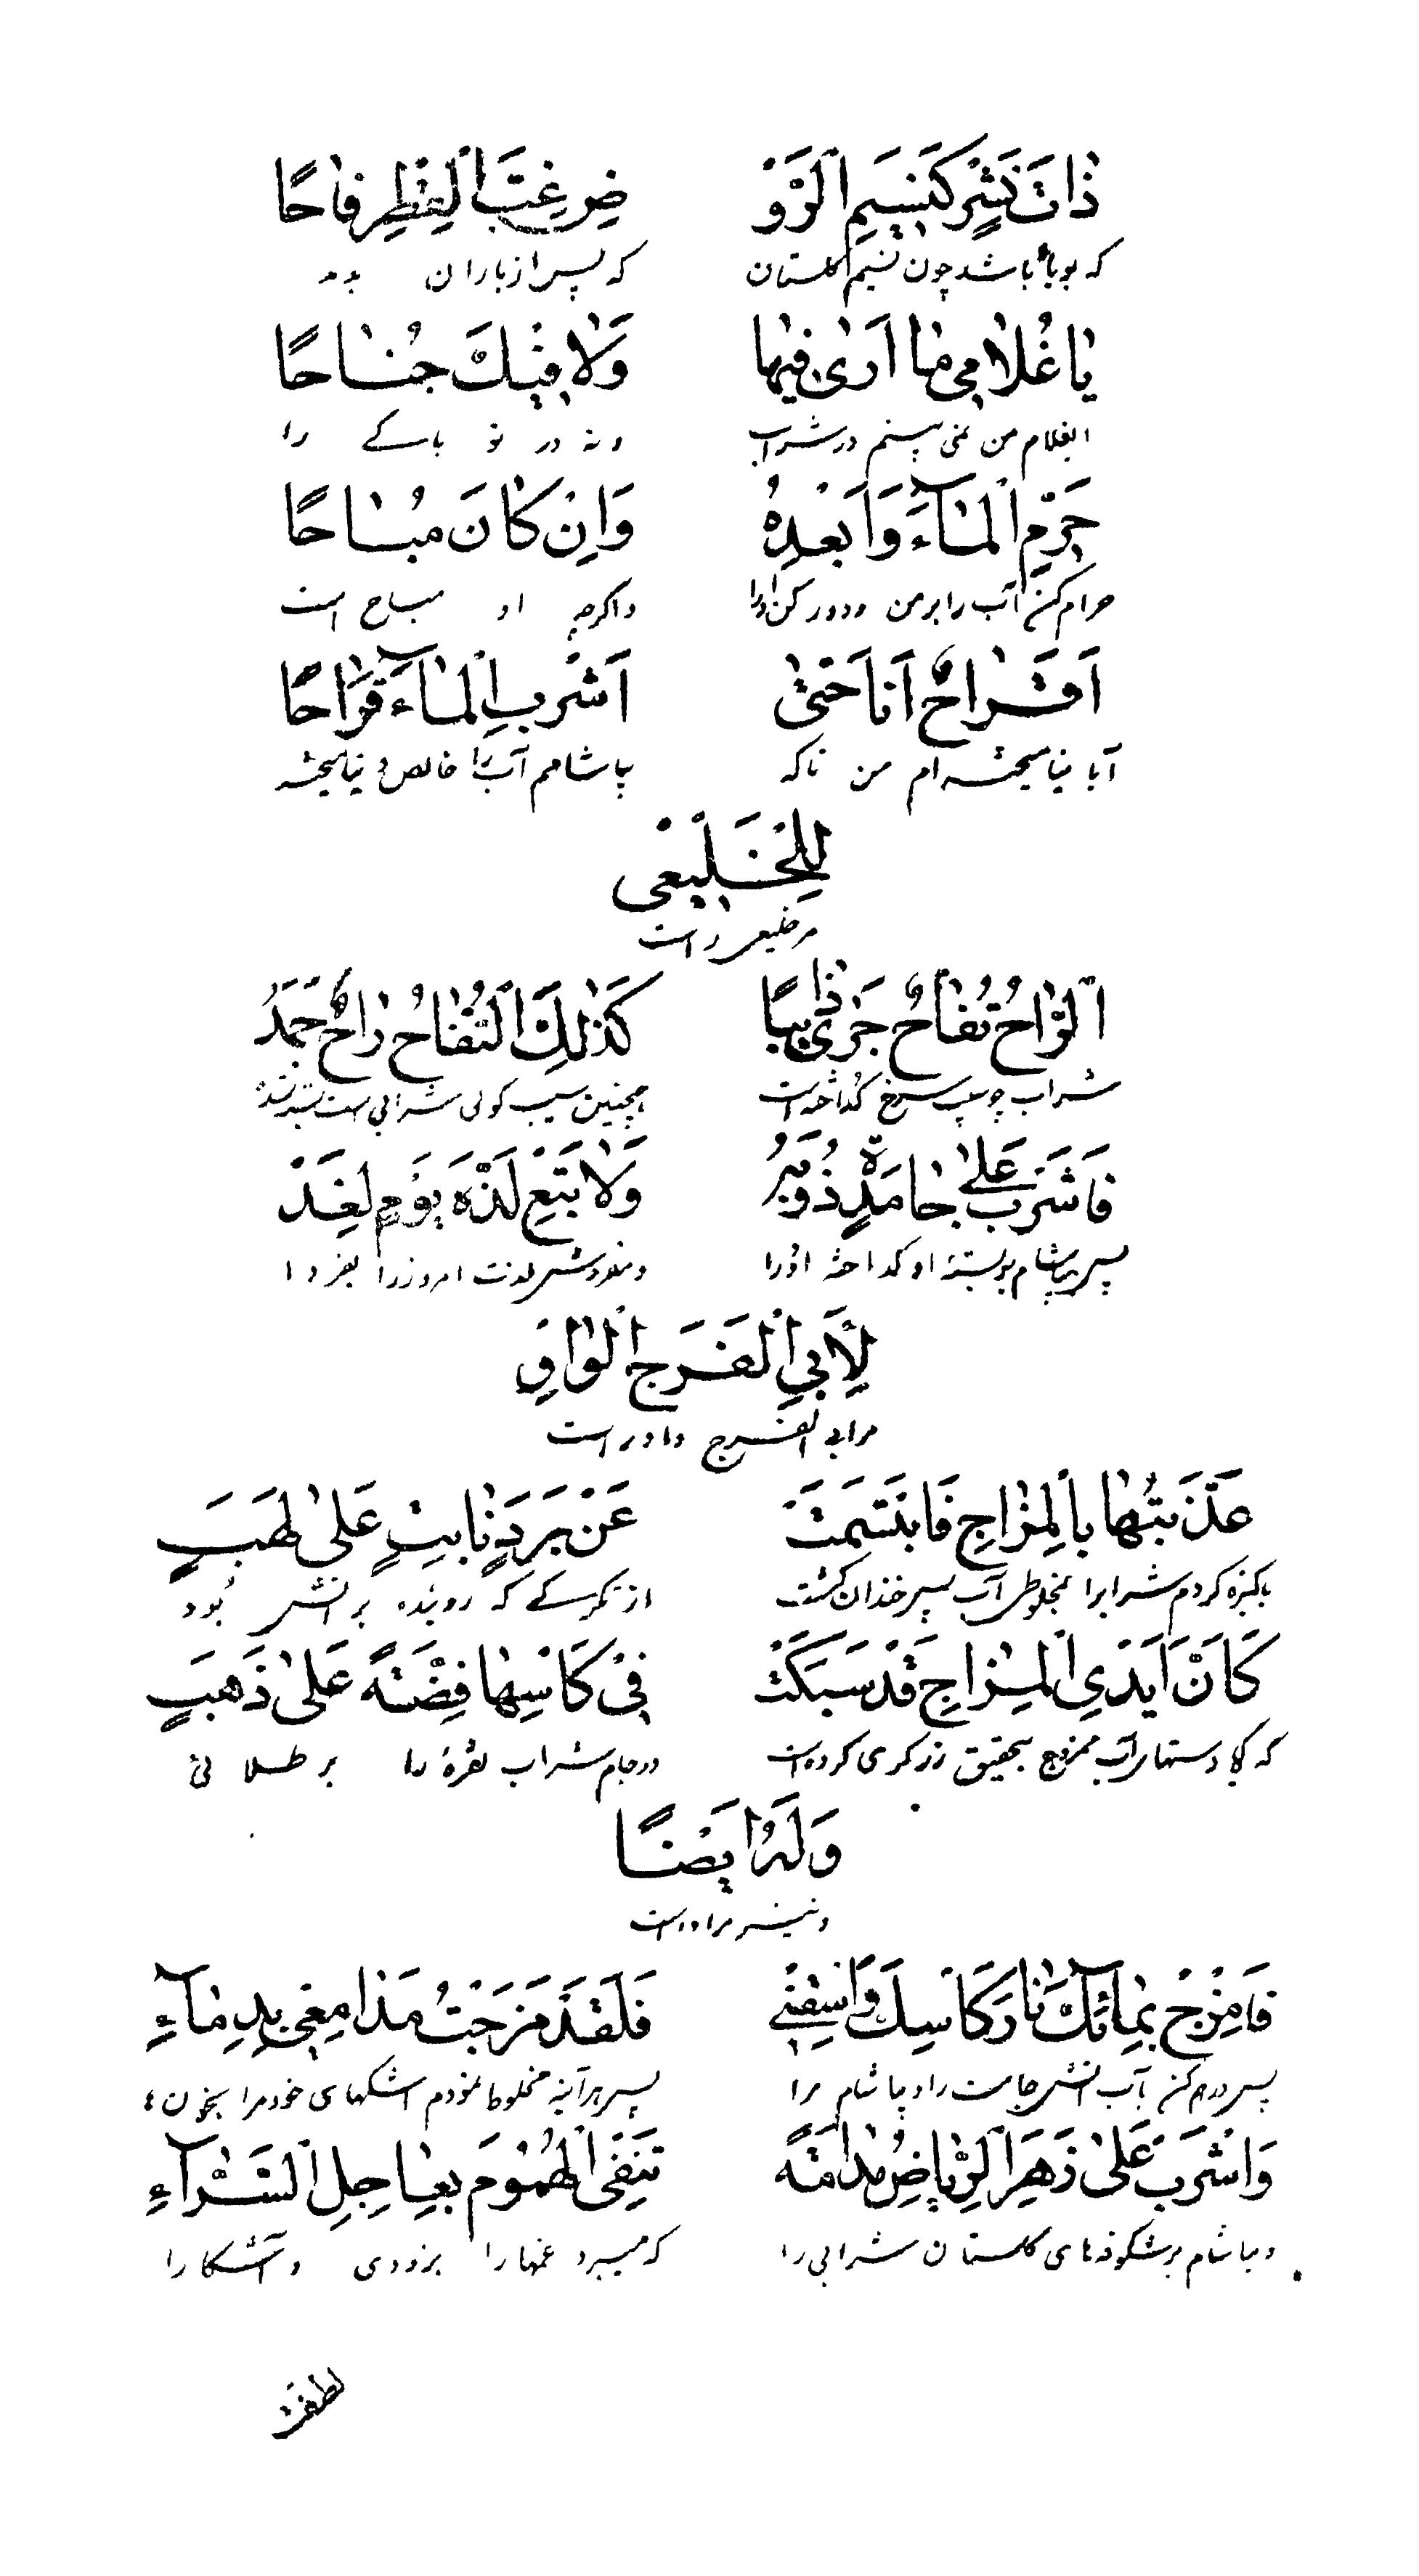 ذَاتَ نَشْرٍ كَنَسِيمِ الرَّوْ ضِ غِبَّ الْقَطْرِ فَاحَا
که بویا باشد چون نسیم گلستان که پس از باران بدمد
يَا غُلَامِي مَا أَرَى فِيهَا وَلَا فِيكَ جُنَاحًا
ایغلام من نمی بینم در شراب و نه در تو باکے را
حَرِّمِ الْمَاءَ وَأَبْعِدْهُ وَإِنْ كَانَ مُبَاحًا
حرام کن آب را بر من و دور کن او را و اگرچه او مباح است
أَقَرَاحٌ أَنَا حَتَّى أَشْرَبَ الْمَاءَ قَرَاحًا
آیا نیامیخته ام من تا که بیاشامم آب را خالص و نیامیخته
لِلْخَلِيعِي
مر خلیعی راست
الرَّاحُ تُفَّاحٌ جَرَى ذَائِبًا كَذَلِكَ التُّفَّاحُ رَاحٌ جَمَدْ
شراب چو سیب سرخ گداخته است همچنین سیب گوئی شرابی است بسته شده
فَاشْرَبْ عَلَى جَامِدَةٍ ذُوْبَهُ وَلَا تَبِعْ لَذَّةَ يَوْمٍ لِغَدْ
پس بیاشام بر بستهٔ او گداخته او را و مفروش لذت امروز را بفردا
لِأَبِي الْفَرَجِ الْوَاوِ
مر ابی الفرج واو راست
عَذَّبْتُهَا بِالْمِزَاجِ فَابْتَسَمَتْ عَنْ بَرَدٍ نَابِتٍ عَلَى لَهَبٍ
پاکیزه کردم شراب را بمخلوطی آب پس خندان گشت از تگرگے که روئیده بر آتش بود
كَأَنَّ أَيْدِي الْمِزَاجِ قَدْ سَبَكَتْ فِي كَأْسِهَا فِضَّةً عَلَى ذَهَبٍ
که گویا دستهای آب ممزوج بتحقیق زرگری کرده است در جام شراب نقرهٔ را بر طلائی
وَلَهُ أَيْضًا
و نیز مر او راست
فَامْزُجْ بِمَائِكَ نَارَ كَأْسِكَ وَاسْقِنِي فَلَقَدْ مَزَجْتُ مَدَامِعِي بِدِمَاءِ
پس درهم کن بآب آتش جامت را و بیاشام مرا پس هر آینه مخلوط نمودم اشکهای خود را بخون
وَاشْرَبْ عَلَى زَهْرِ الرِّيَاضِ مُدَامَةً تَنْفِي الْهُمُومَ بِعَاجِلِ السَّرَّاءِ
و بیاشام بر شکوفهای گلستان شرابی را که میبرد غمها را بزودی و آشکارا
لطفت